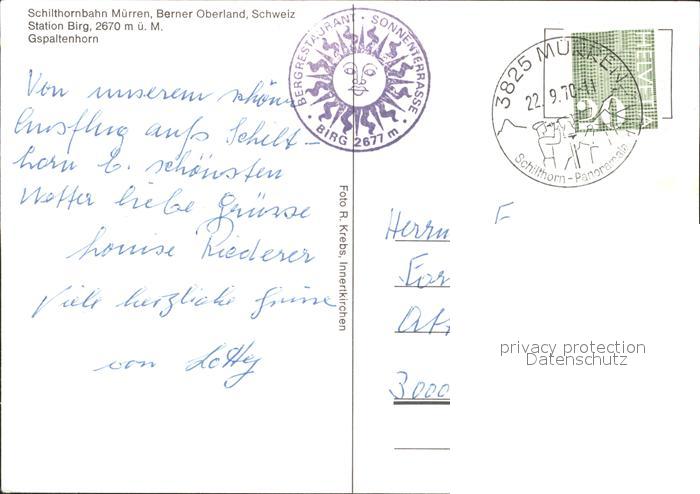 Schilthornbahn Mürren, Berner Oberland, Schweiz
Station Birg, 2670 m ü. M.
Gspaltenhorn
BERGRESTAURANT · SONNENTERRASSE
· BIRG 2677 m ·
3825 MÜRREN
22. 9. 70-11
Schilthorn-Panorama
HELVETIA
Von unserem schönen
Ausflug aufs Schilt-
horn b. schönsten
Wetter liebe Grüsse
Louise Riederer
Viele herzliche Grüsse
von Lotty
Foto R. Krebs, Innertkirchen
Herrn F
3000
privacy protection
Datenschutz